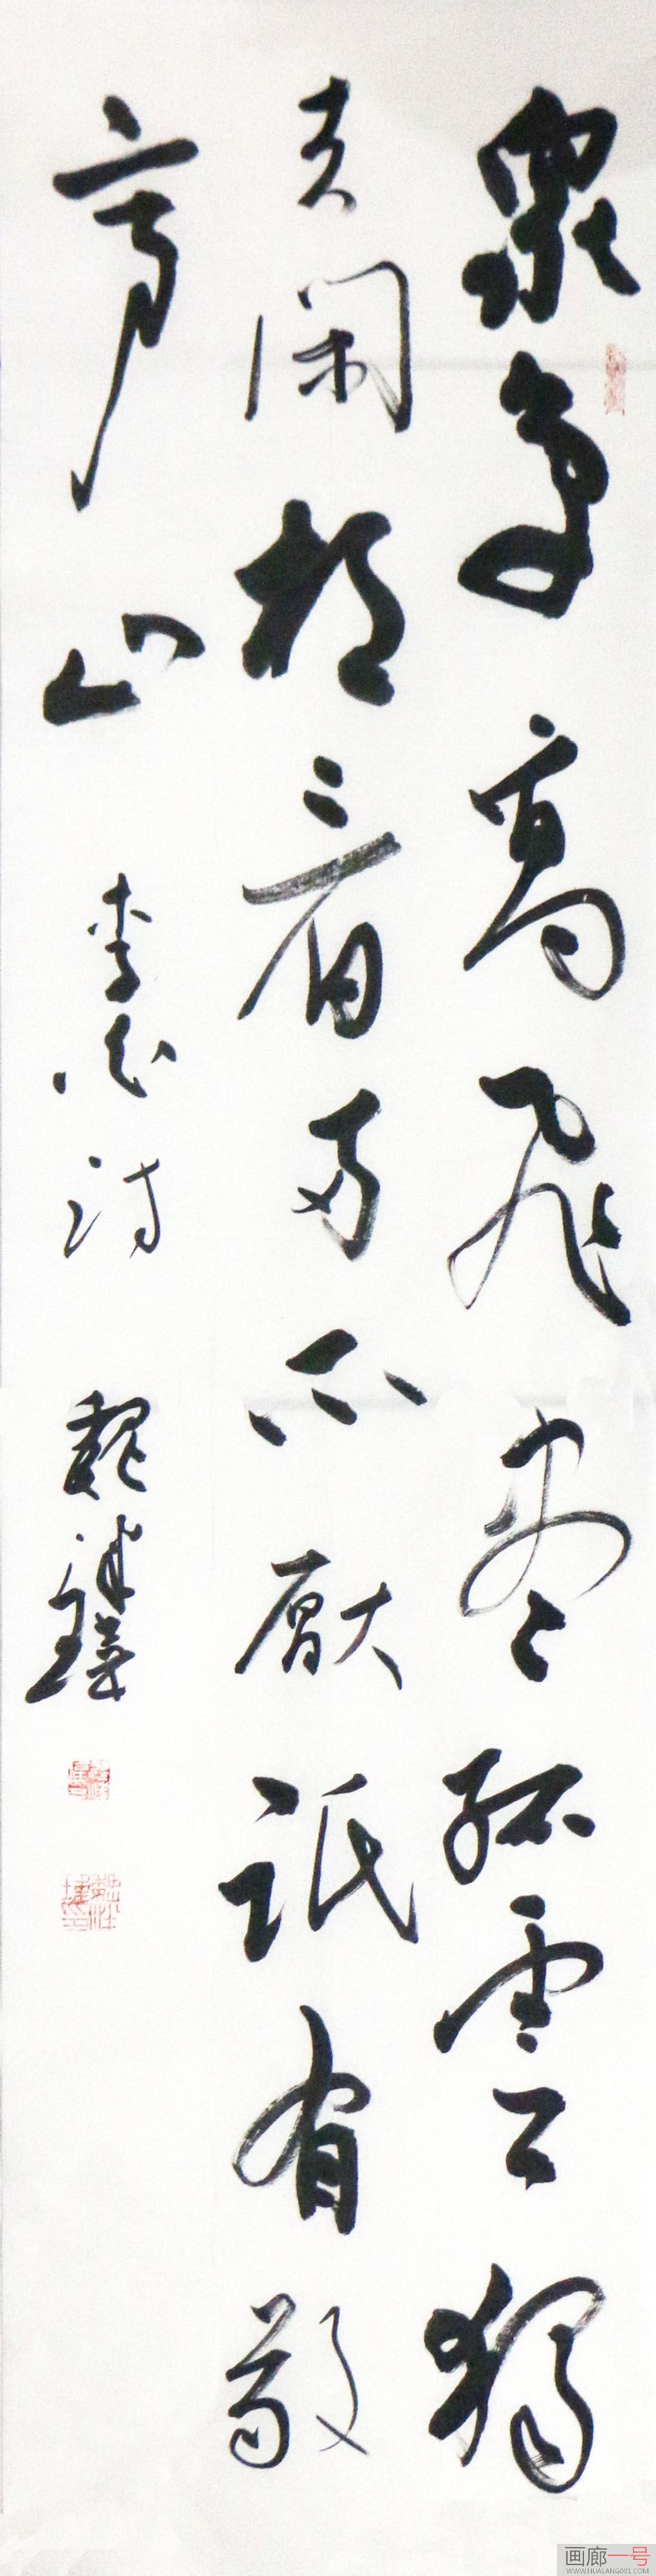 眾鳥高飛盡孤雲獨
去閑相看兩不厭祇有敬
亭山 李白詩 魏
画廊一号
WWW.HUALANG001.COM